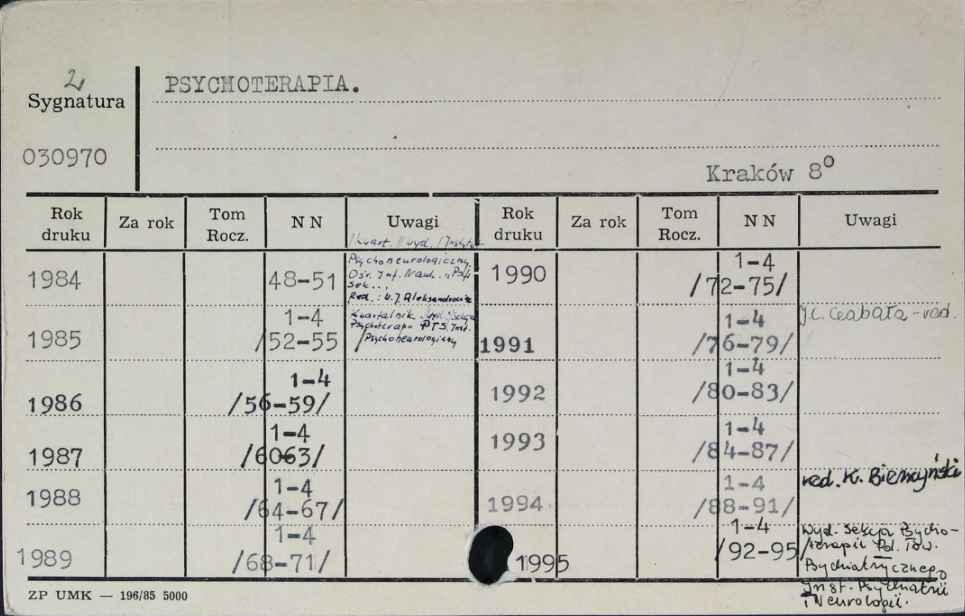 2
PSYCHOTERAPIA.
Sygnatura
030970
Kraków 8°
Rok druku Za rok Tom Rocz. N N Uwagi Rok druku Za rok Tom Rocz. N N Uwagi
Psychoneurologiczny
1984 48-51
Red.:
1990 1-4
/72-75/
1985 1-4
/52-55
Kwartalnik
Psychoterapii PTS. Inst.
Psychoneurologiczny
1991 1-4
/76-79/
J.C. Czabała - red.
1986 1-4
/56-59/
1992 1-4
/80-83/
1987 1-4
/6063/
1993 1-4
/84-87/
1988 1-4
/64-67/
1994 1-4
/88-91/
red. K.
1989 1-4
/68-71/
1995 1-4
/92-95/
Wyd. Sekcja Psycho-
terapii Pol. Tow.
Psychiatrycznego
Inst. Psychiatrii
i Neurologii.
ZP UMK — 196/85 5000